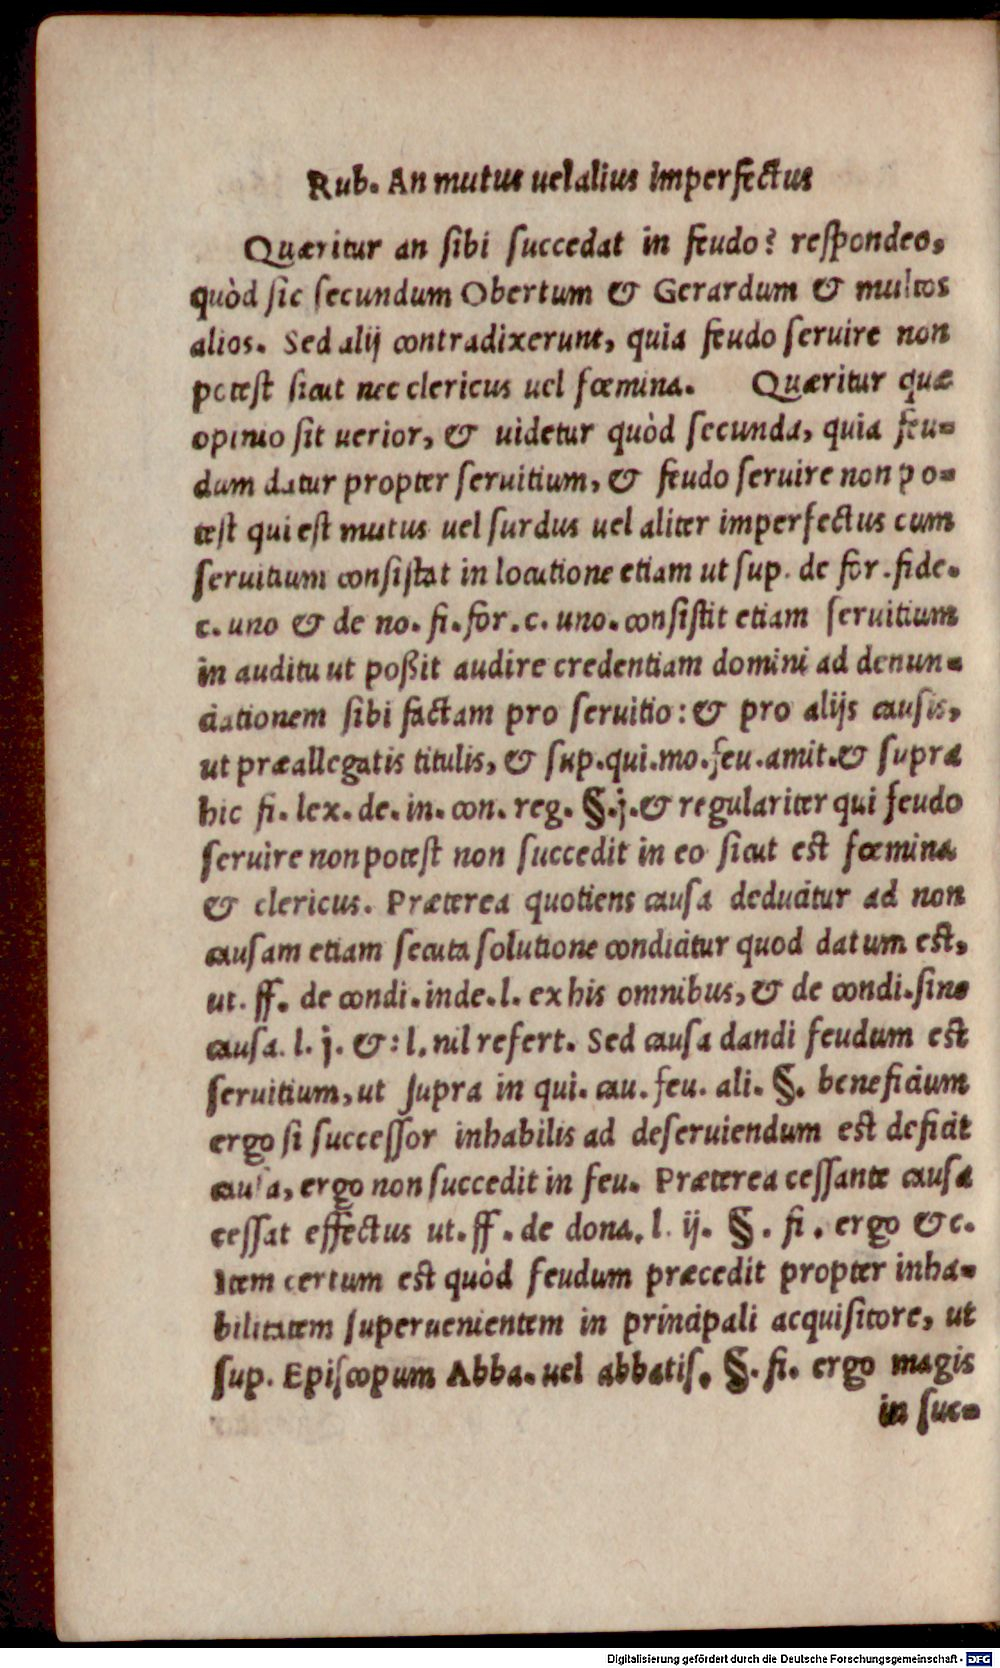 Rub. An mutus uel alius imperfectus
Quæritur an sibi succedat in feudo? respondeo,
quòd sic secundum Obertum & Gerardum & multos
alios. Sed alij contradixerunt, quia feudo seruire non
potest sicut nec clericus uel fœmina. Quæritur quæ
opinio sit uerior, & uidetur quòd secunda, quia feu-
dum datur propter seruitium, & feudo seruire non po-
test qui est mutus uel surdus uel aliter imperfectus cum
seruitium consistat in locutione etiam ut sup. de for. fide.
c. uno & de no. fi. for. c. uno. consistit etiam seruitium
in auditu ut poßit audire credentiam domini ad denun-
ciationem sibi factam pro seruitio: & pro alijs causis,
ut præallegatis titulis, & sup. qui. mo. feu. amit. & supra
hic fi. lex. de. in. con. reg. §. j. & regulariter qui feudo
seruire non potest non succedit in eo sicut est fœmina
& clericus. Præterea quotiens causa deducitur ad non
causam etiam secuta solutione condicitur quod datum est,
ut. ff. de condi. inde. l. ex his omnibus, & de condi. sine
causa. l. j. &: l. nil refert. Sed causa dandi feudum est
seruitium, ut supra in qui. cau. feu. ali. §. beneficium
ergo si successor inhabilis ad deseruiendum est deficit
causa, ergo non succedit in feu. Præterea cessante causa
cessat effectus ut. ff. de dona. l. ij. §. fi. ergo &c.
Item certum est quòd feudum præcedit propter inha-
bilitatem superuenientem in principali acquisitore, ut
sup. Episcopum Abba. uel abbatis. §. fi. ergo magis
in suc-
Digitalisierung gefördert durch die Deutsche Forschungsgemeinschaft - DFG